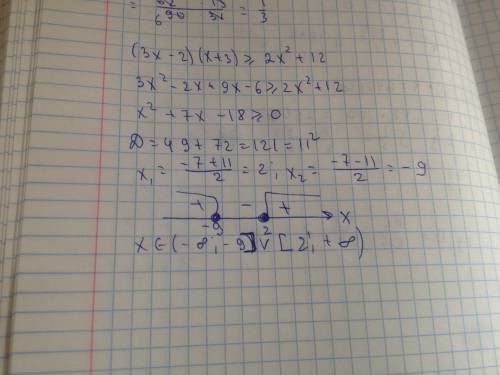 (3x-2)(x+3) ⩾ 2x²+12
3x²-2x+9x-6 ⩾ 2x²+12
x²+7x-18 ⩾ 0
D=49+72=121=11²
x₁= (-7+11)/2 =2; x₂= (-7-11)/2 =-9
+ - +
-9 2 x
x∈(-∞;-9]∨[2;+∞)